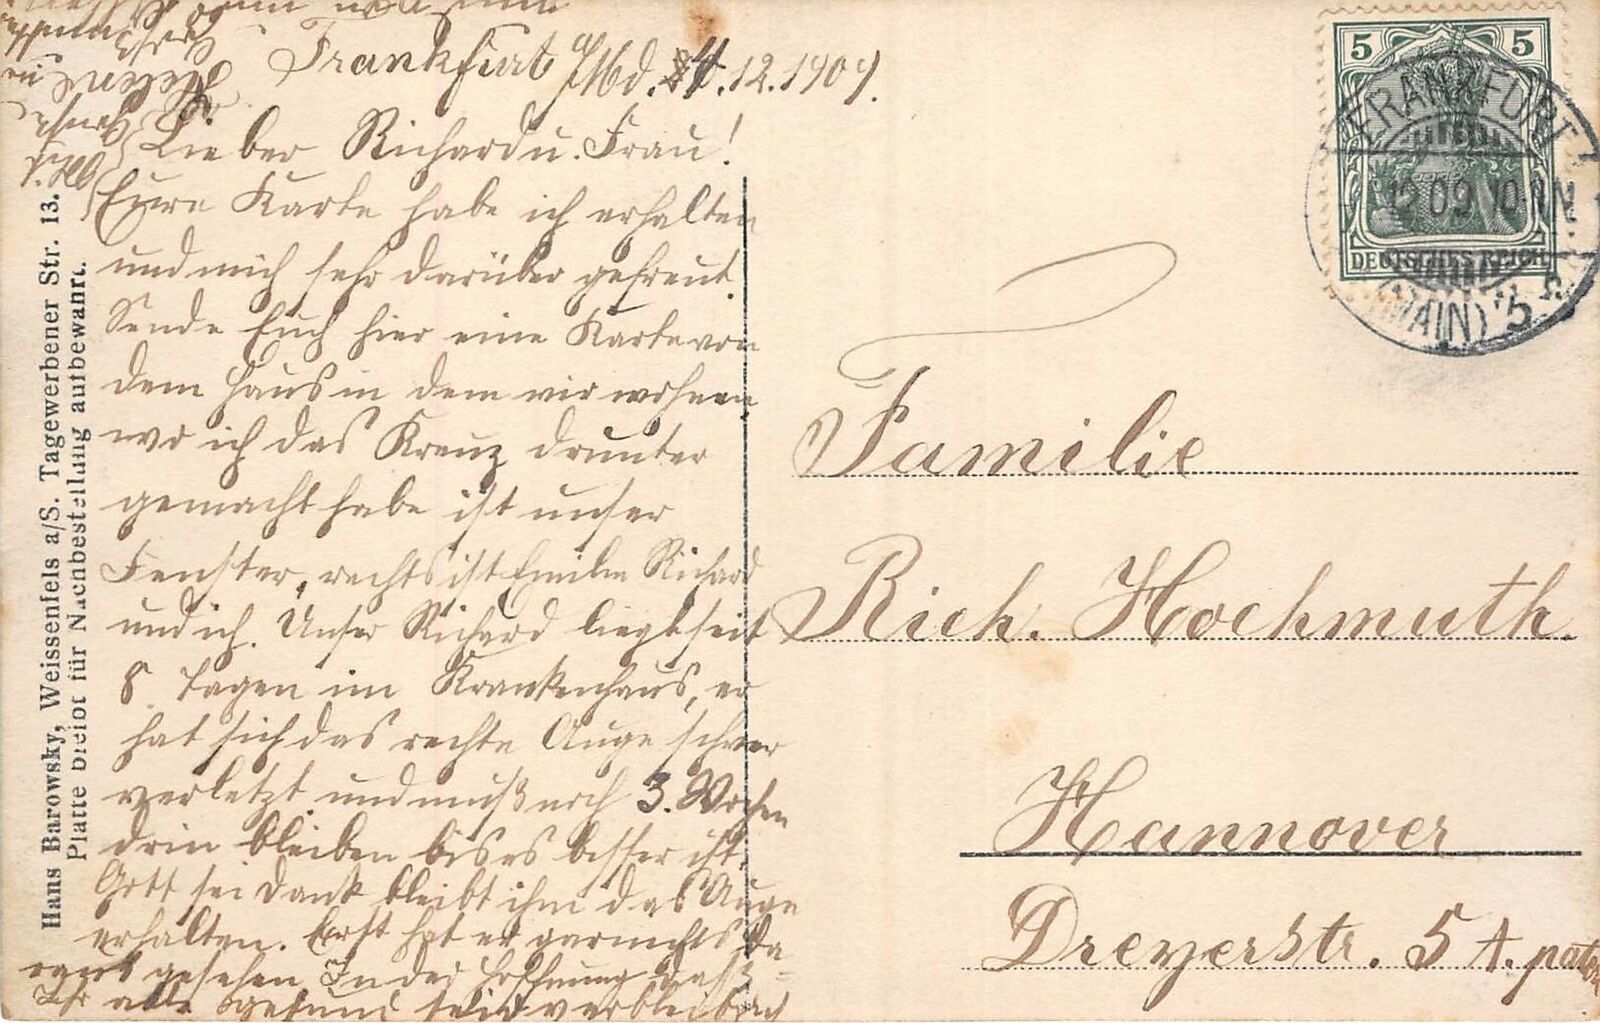 Frankfurt a/Md. 4.12.1909.
Lieber Richard u. Frau!
Eure Karte habe ich erhalten
und mich sehr darüber gefreut.
Sende Euch hier eine Karte von
dem Haus in dem wir wohnen
wo ich das Kreuz drunter
gemacht habe ist unser
Fenster, rechts ist Emilie Richard
und ich. Unser Richard liegt seit
8 Tagen im Krankenhaus, er
hat sich das rechte Auge schwer
verletzt und muß noch 3. Wochen
drin bleiben bis es besser ist.
Gott sei Dank bleibt ihm das Auge
erhalten. Erst hat er garnichts da-
raus gesehen In der Hoffnung daß
Ihr alle gesund seid verbleibe ich
Familie
Rich. Hochmuth.
Hannover
Dreyerstr. 5 A. part.
Hans Barowsky, Weissenfels a/S. Tagewerbener Str. 13.
Platte bleibt für Nachbestellung aufbewahrt.
5 5
DEUTSCHES REICH
FRANKFURT
12 09 10-11 N
(MAIN) 5